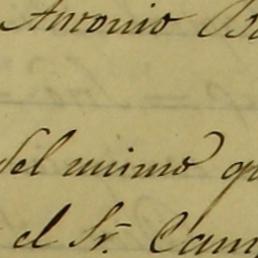 Antonio
del mismo
el Sr. Cam